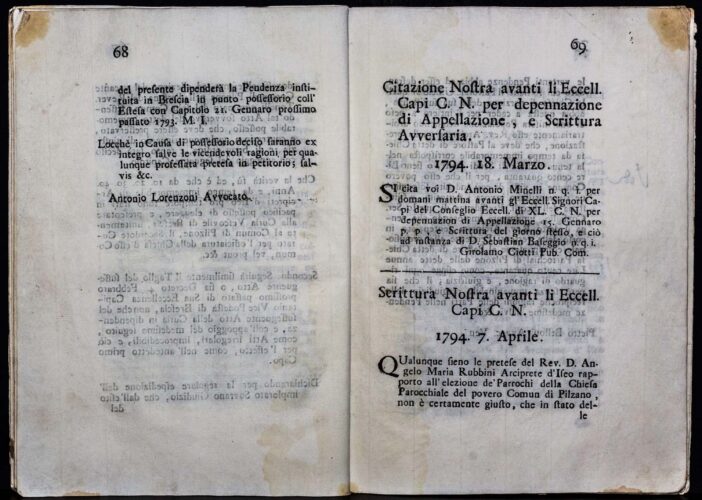 68
del presente dipenderà la Pendenza insti-
tuita in Brescia in punto possessorio coll'
Estesa con Capitolo 21. Gennaro prossimo
passato 1793. M. I.
Locchè in Causa di possessorio deciso saranno ex
integro salve le vicendevoli ragioni per qua-
lunque professata pretesa in petitorio; sal-
vis &c.
Antonio Lorenzoni Avvocato.
69
Citazione Nostra avanti li Eccell.
Capi C. N. per depennazione
di Appellazione, e Scrittura
Avversaria.
1794. 18. Marzo.
SI cita voi D. Antonio Minelli n. q. i. per
domani mattina avanti gl'Eccell. Signori Ca-
pi del Conseglio Eccell. di XL. C. N. per
depennazion di Appellazione 15. Gennaro
p. p. e Scrittura del giorno stesso, e ciò
ad instanza di D. Sebastian Baseggio n. q. i.
Girolamo Ciotti Pub. Com.
Scrittura Nostra avanti li Eccell.
Capi C. N.
1794. 7. Aprile.
QUalunque sieno le pretese del Rev. D. An-
gelo Maria Rubbini Arciprete d'Iseo rap-
porto all'elezione de' Parrochi della Chiesa
Parocchiale del povero Comun di Pilzano,
non è certamente giusto, che in stato del-
le